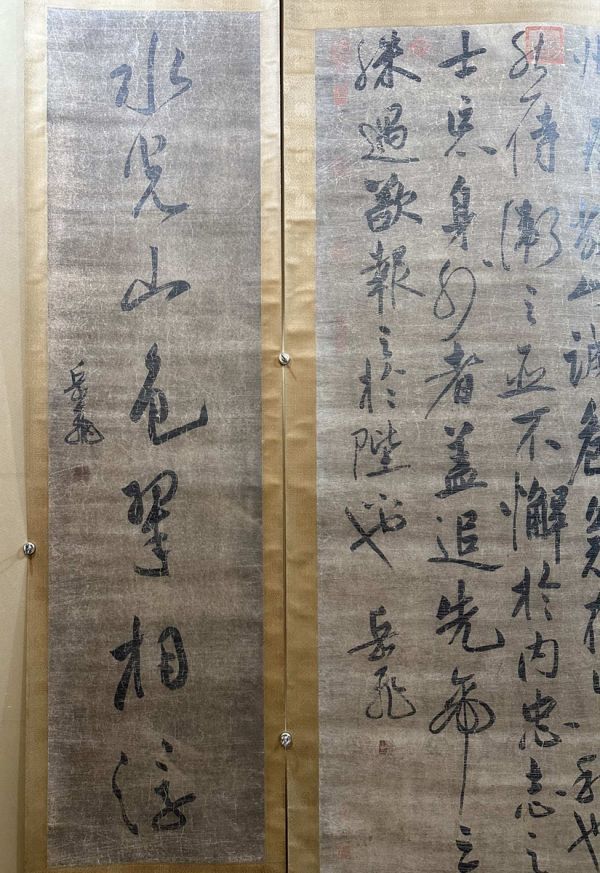 州疲敝此誠危急存
然侍衛之臣不懈於內忠志之
士忘身外者蓋追先帝之
殊遇欲報之於陛下也
岳飛
水光山色翠相浮
岳飛